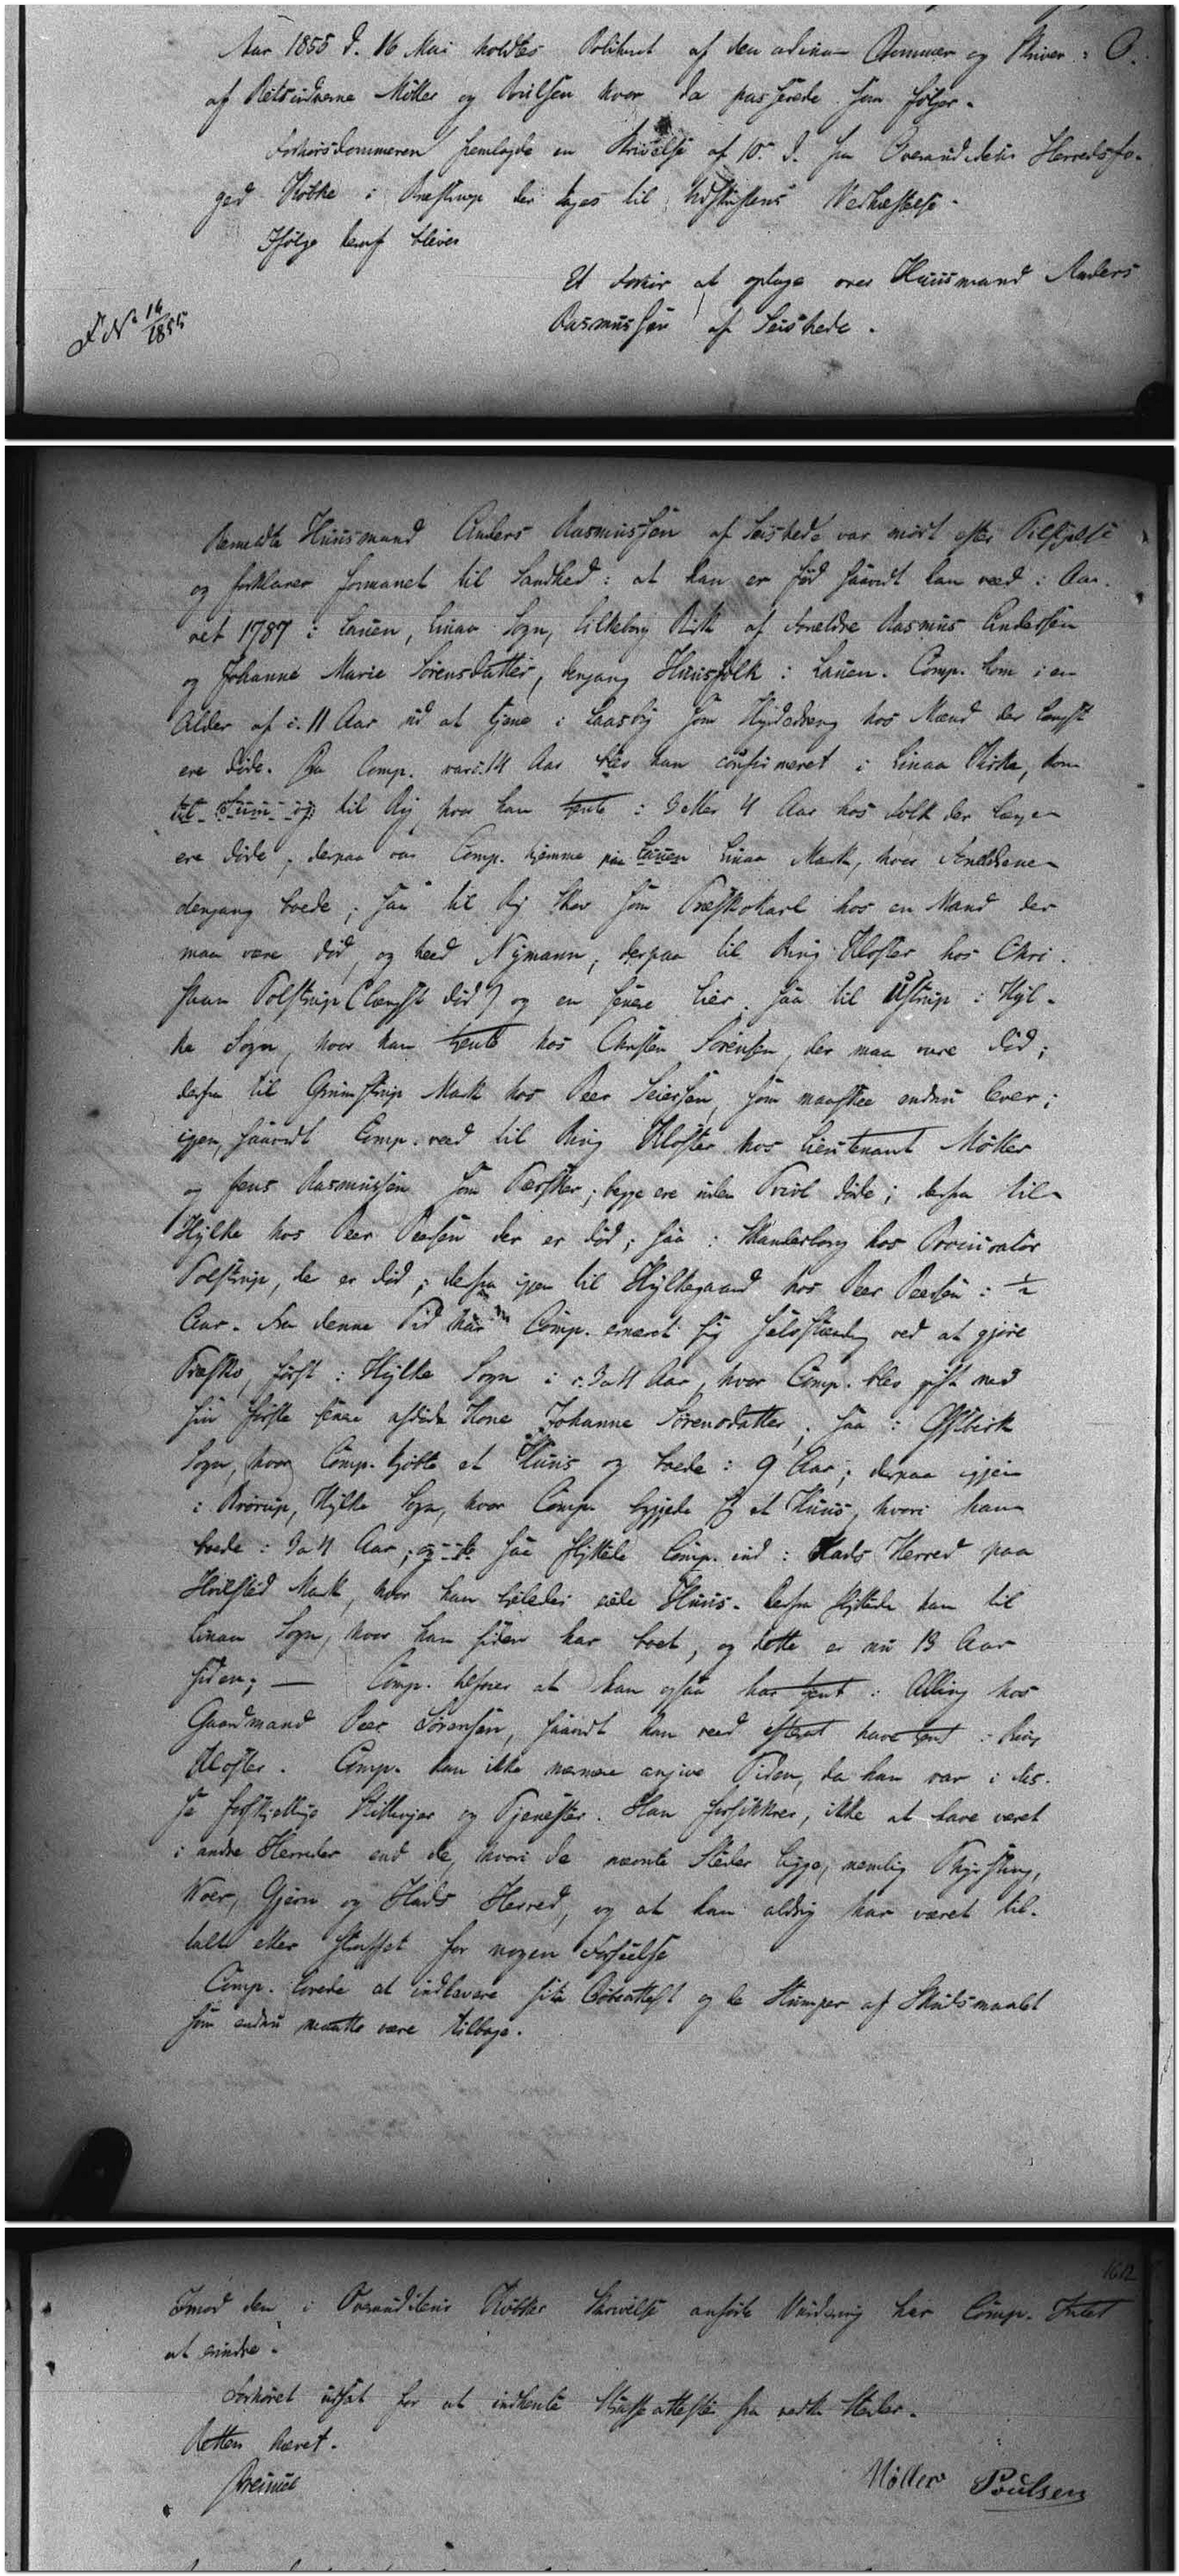 Aar 1855 d. 16 Mai holdtes Politiret af den ordinære Dommer og Skriver i O.
af Retsvidnerne Møller og Poulsen hvor da passerede som følger.
Forhørsdommeren fremlagde en Skrivelse af 10. d. fra Overauditeur Herredsfo-
ged Købke i Bræstrup der tages til Udskriftens Vedhæftelse.
Ifølge heraf bliver
Et Forhør at optage over Huusmand Anders
Rasmussen af Seishede.
P. No 14/1855
Bemeldte Huusmand Anders Rasmussen af Seishede var mødt efter Tilsigelse
og forklarer formanet til Sandhed: at han er født saavidt han veed i Aa-
ret 1787 i Lauen, Linaa Sogn, Silkeborg Birk af Forældre Rasmus Andersen
og Johanne Marie Sørensdatter, dengang Huusfolk i Lauen. Comp. kom i en
Alder af c. 11 Aar ud at tjene i Laasby som Hyrdedreng hos Mænd der længst
ere døde. Da Comp. var c. 14 Aar blev han confirmeret i Linaa Kirke, kom
til Ry hvor han tjente i 3 eller 4 Aar hos Folk der længe
ere døde; derpaa var Comp. hjemme paa Lauen Linaa Mark, hvor Forældrene
dengang boede; saa til Ry Skov som Træskokarl hos en Mand der
maa være død, og heed Nymann; derpaa til Ring Kloster hos Chri-
stian Tolstrup (længst død) og en senere Eier. saa til Ustrup i Hyl-
ke Sogn, hvor han tjente hos Christen Sørensen, der maa være død;
derfra til Grumstrup Mark hos Peer Seiersen, som maaskee endnu lever;
igjen, saavidt Comp. veed til Ring Kloster hos Lieutenant Møller
og Jens Rasmussen som Tærsker; begge ere uden Tvivl døde; derfra til
Hylke hos Peer Peersen der er død; saa i Skanderborg hos Procurator
Tolstrup, der er død; derfra igjen til Hylkegaard hos Peer Peersen i ½
Aar. Fra denne Tid har Comp. ernæret sig selvstændig ved at gjøre
Træsko, først i Hylke Sogn i c. 3 a 4 Aar, hvor Comp. blev gift med
sin første senere afdøde Kone Johanne Sørensdatter; saa i Østbirk
Sogn, hvor Comp. kjøbte et Huus og boede i 9 Aar; derpaa igjen
i Brørup, Hylke Sogn, hvor Comp. byggede sig et Huus, hvori han
boede i 3 a 4 Aar; og saa flyttede Comp. ind i Hads Herred paa
Hvilsted Mark, hvor han ligeledes eiede Huus. Derfra flyttede han til
Linaa Sogn, hvor han siden har boet, og dette er nu 13 Aar
siden; — Comp. tilføier at han ogsaa har tjent i Alling hos
Gaardmand Peer Sørensen, saavidt han veed efterat have tjent i Ring
Kloster. Comp. kan ikke nærmere angive Tiden, da han var i dis-
se forskjellige Stillinger og Tjenester. Han forsikkrer, ikke at have været
i andre Herreder end de, hvori de nævnte Steder ligge, nemlig Thyrsting,
Woer, Gjern og Hads Herred, og at han aldrig har været til-
talt eller straffet for nogen Forseelse
Comp. lovede at indlevere sin Døbeattest og de Stumper af Skudsmaalet
som endnu maatte være tilbage.
1612
Imod den i Overauditeur Købkes Skrivelse anførte Vurdering har Comp. Intet
at erindre.
Forhøret udsat for at indhente Straffeattester fra vedk. Steder.
Retten hævet.
Møller Poulsen